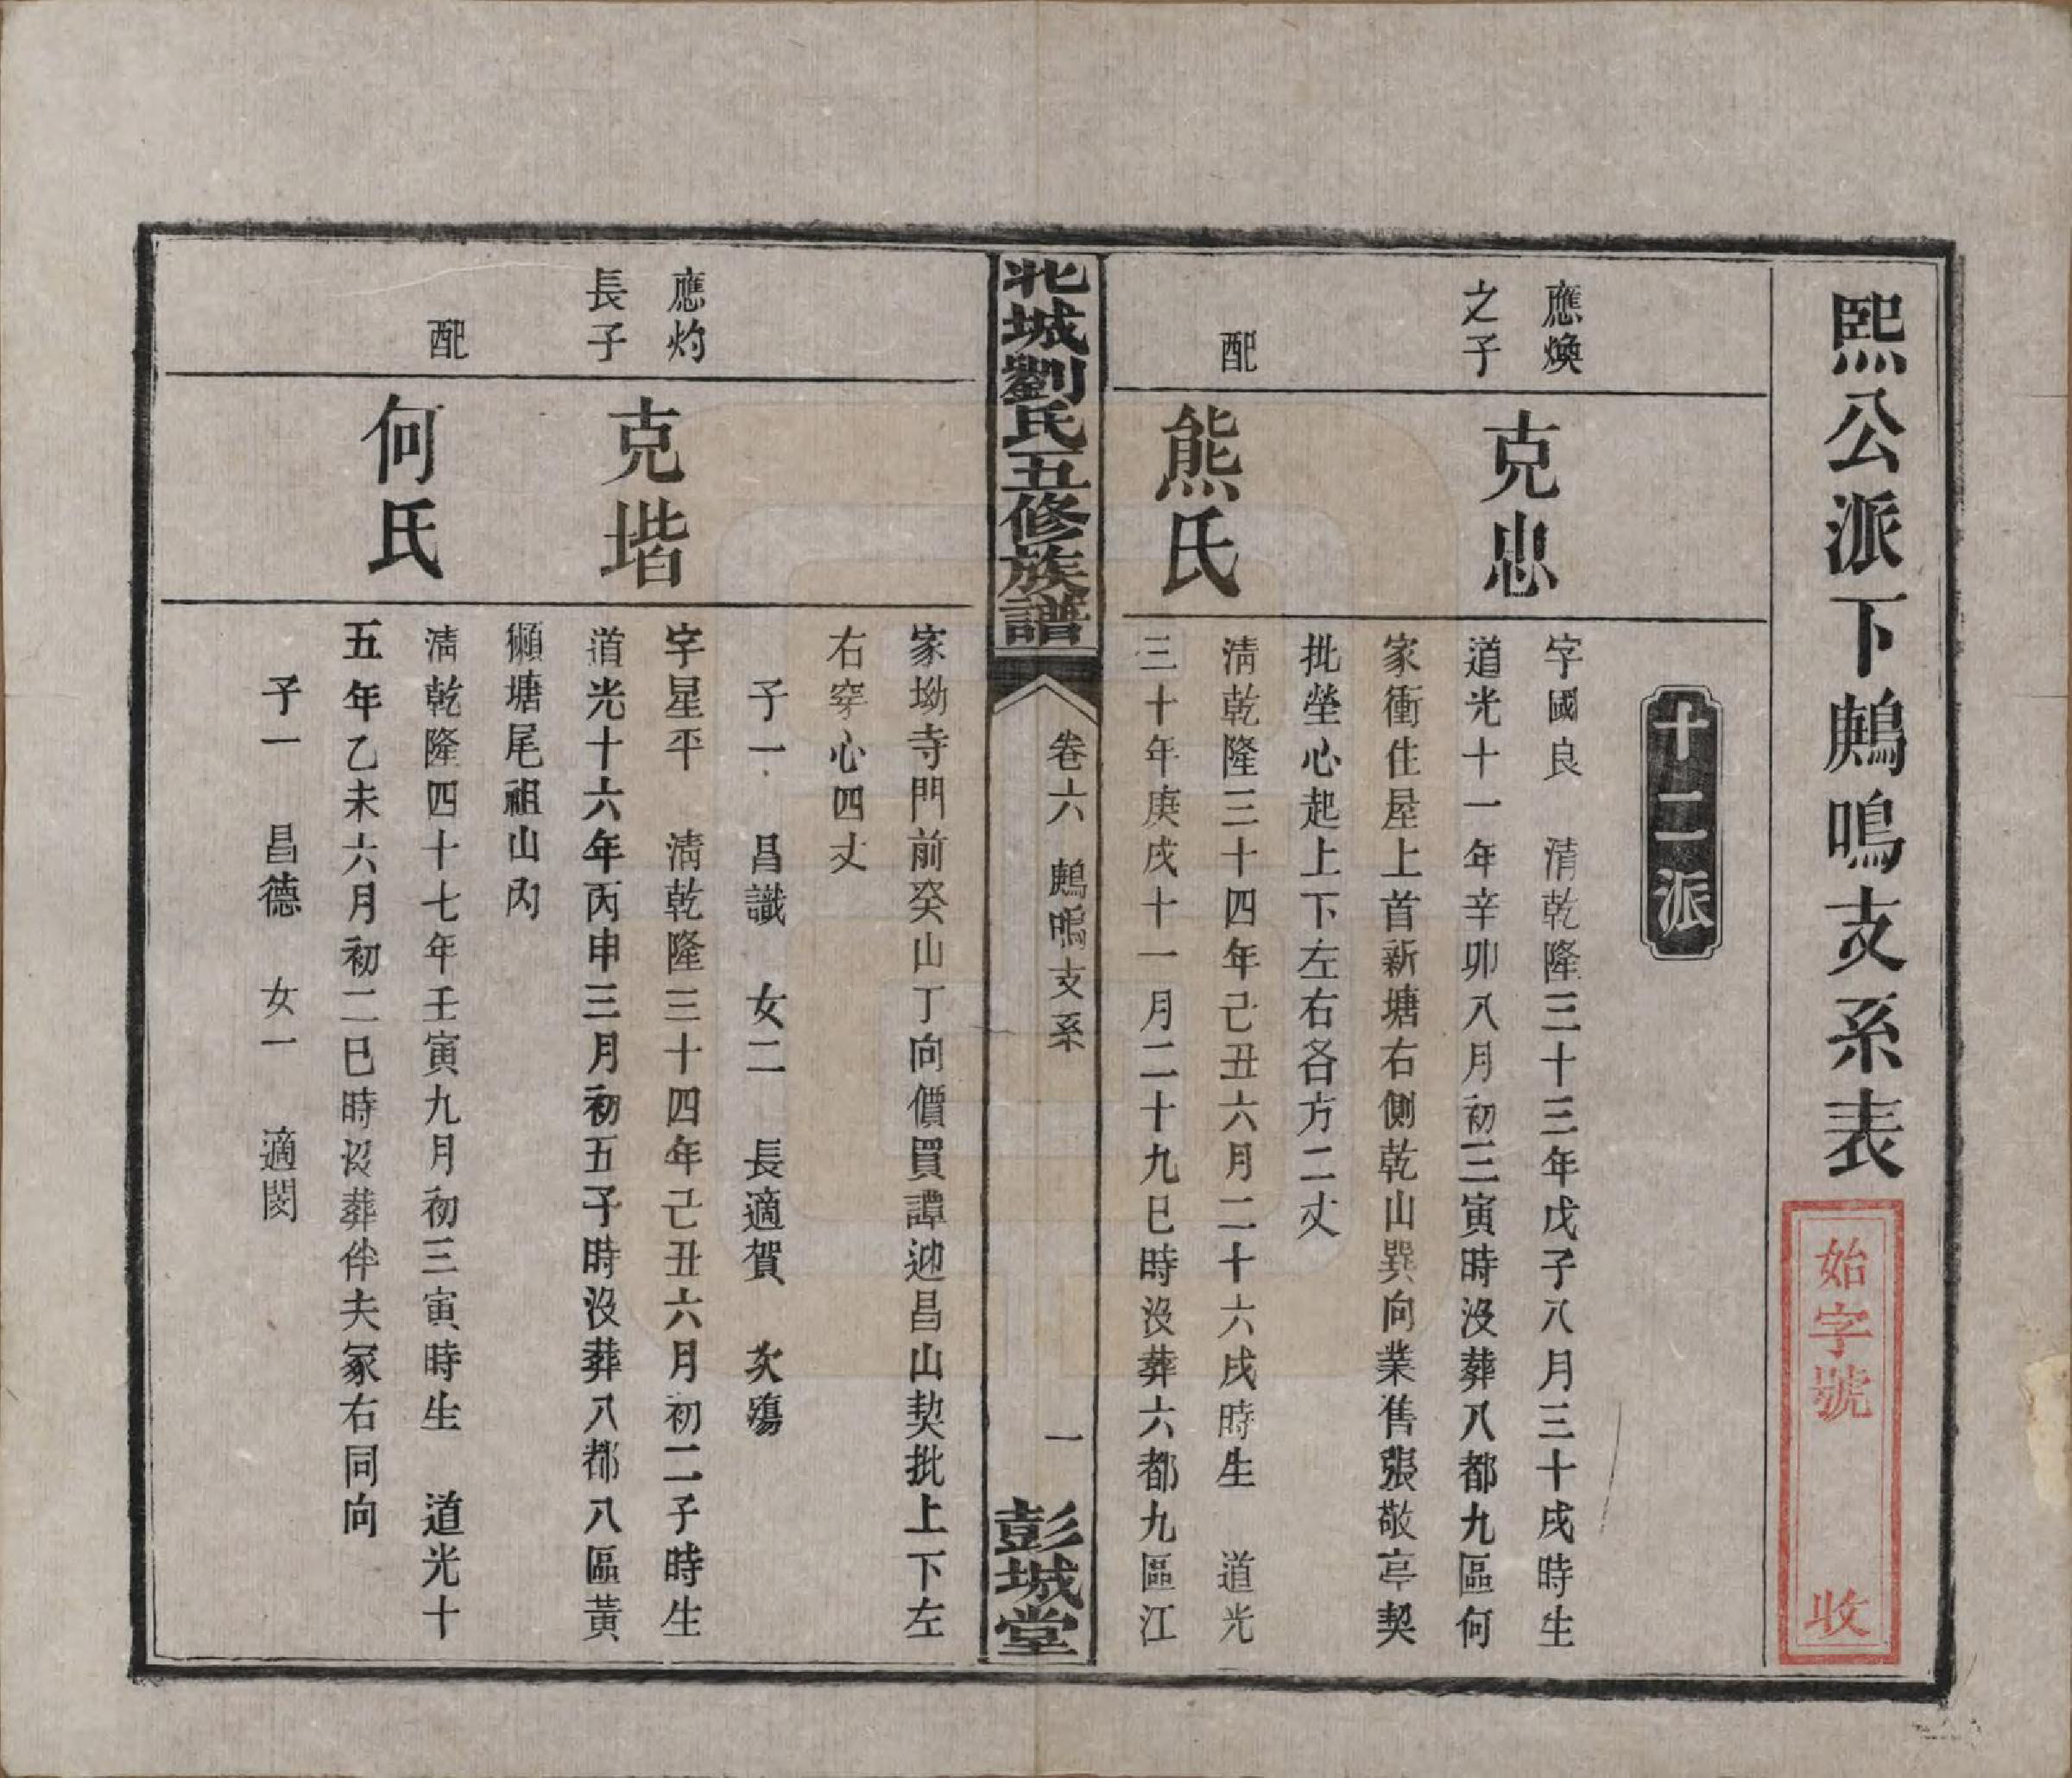 熙公派下鷓鳴支系表
始字號 收
十二派
應煥
之子
克忠
字國良 清乾隆三十三年戊子八月三十戌時生
道光十一年辛卯八月初三寅時沒葬八都九區何
家衝住屋上首新塘右側乾山巽向業售張敬亭契
批塋心起上下左右各方二丈
配
熊氏
清乾隆三十四年己丑六月二十六戌時生 道光
三十年庚戌十一月二十九巳時沒葬六都九區江
北城劉氏五修族譜
卷六 鷓鳴支系
一
彭城堂
家坳寺門前癸山丁向價買譚迎昌山契批上下左
右穿心四丈
子一 昌識 女二 長適賀 次殤
應灼
長子
克堦
字星平 清乾隆三十四年己丑六月初二子時生
道光十六年丙申三月初五子時沒葬八都八區黃
獺塘尾祖山內
配
何氏
清乾隆四十七年壬寅九月初三寅時生 道光十
五年乙未六月初二巳時沒葬伴夫冢右同向
子一 昌德 女一 適閔